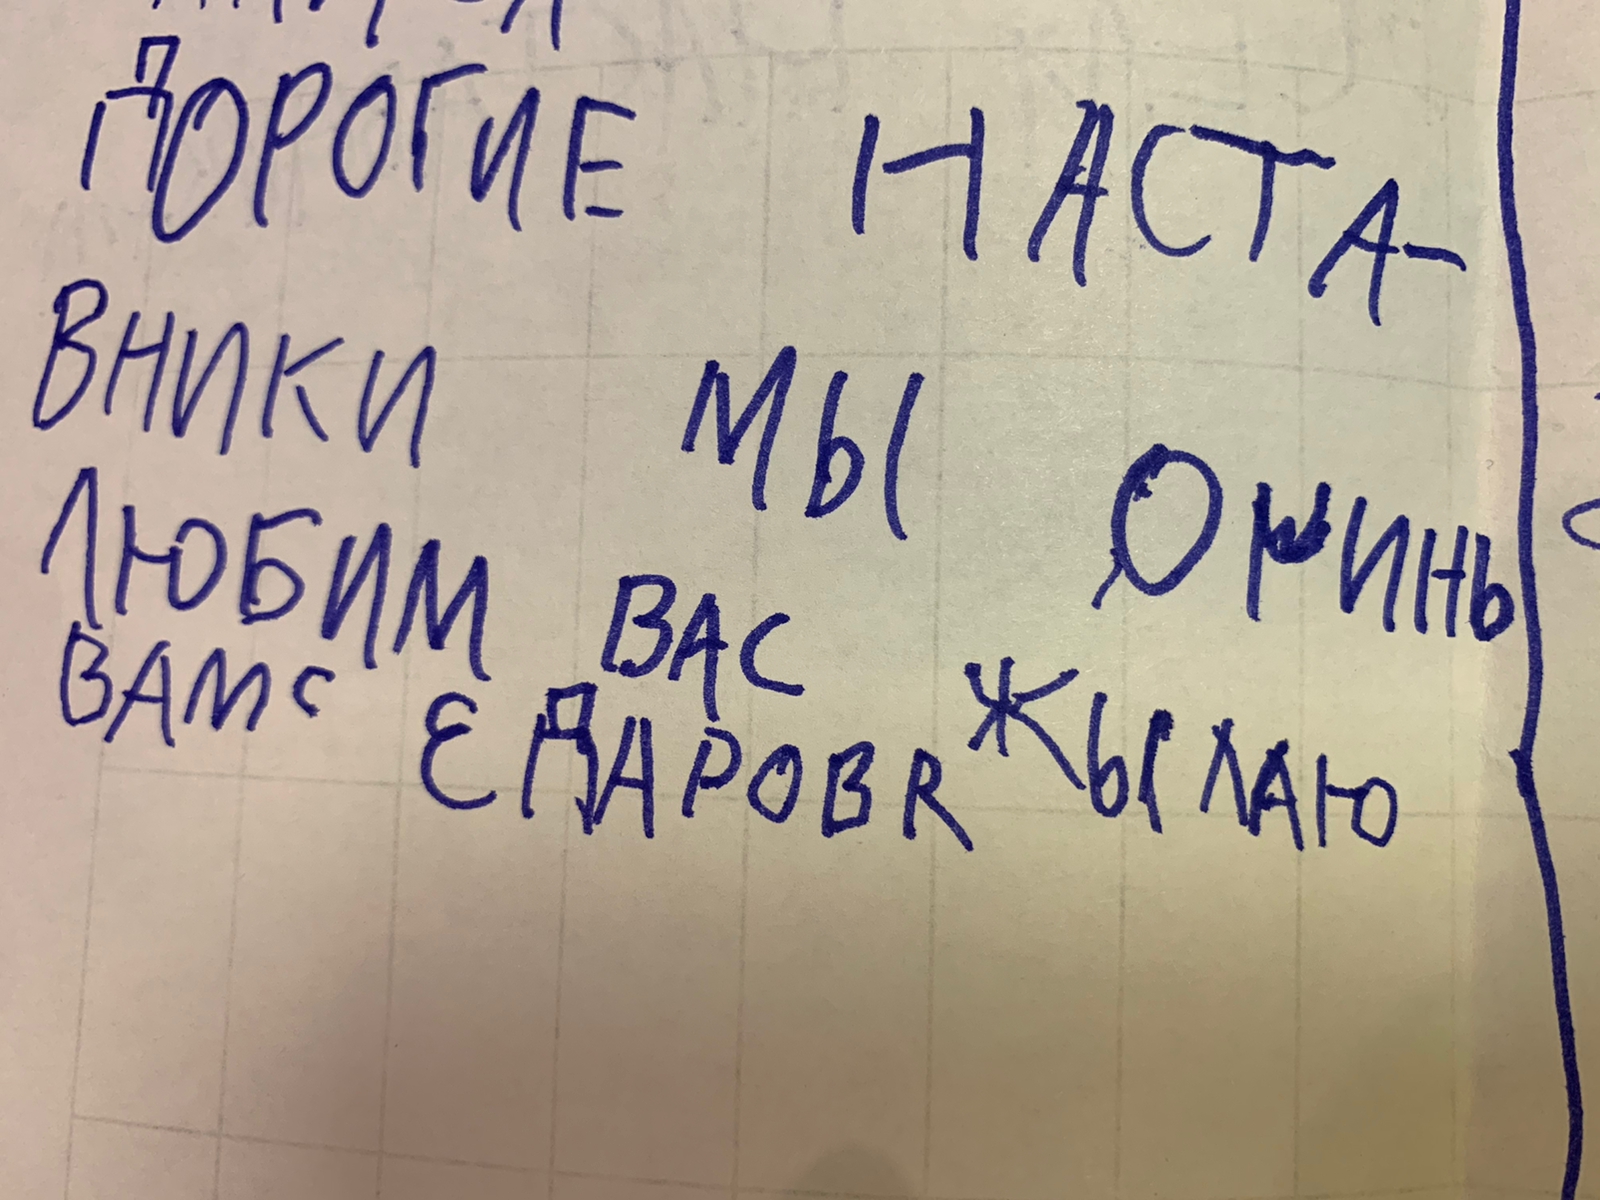 ДОРОГИЕ НАСТА-
ВНИКИ МЫ ОЧИНЬ
ЛЮБИМ ВАС
ВАМ С ЕДАРОВЯ ЖЫЛАЮ